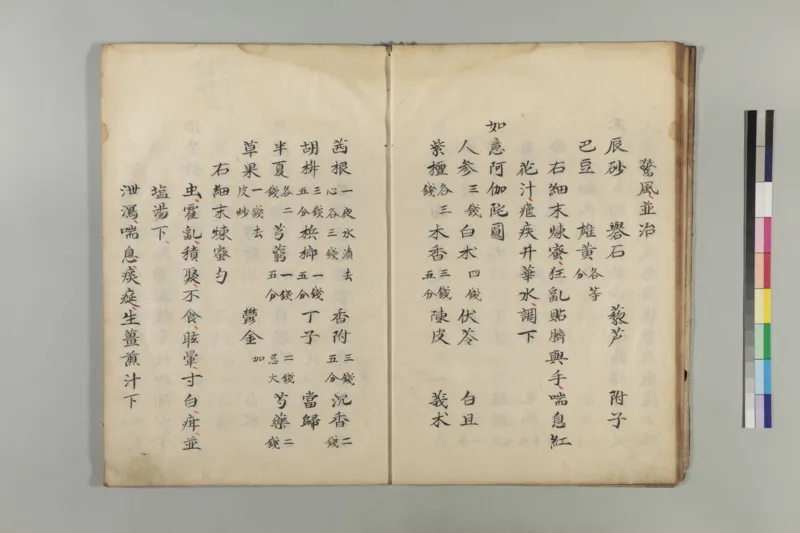 驚風並治
辰砂 礜石 藜芦 附子
巴豆 雄黄各等分
右細末煉蜜狂乱貼臍與手喘息紅
花汁瘧疾井華水調下
如意阿伽陀圓
人参三錢白朮四錢伏苓 白且
紫檀各三錢木香三錢五分陳皮 莪朮
茜根一夜水漬去心各三錢 香附三錢五分沉香二錢
胡椒三錢五分梹榔一錢五分丁子 當歸
半夏各二錢芎藭一錢五分 二錢忌火芍藥二錢
草果一錢去皮炒 鬱金加
右細末煉蜜勻
虫霍乱積聚不食眩暈寸白疳並
塩湯下
泄瀉喘息痰症生薑煎汁下